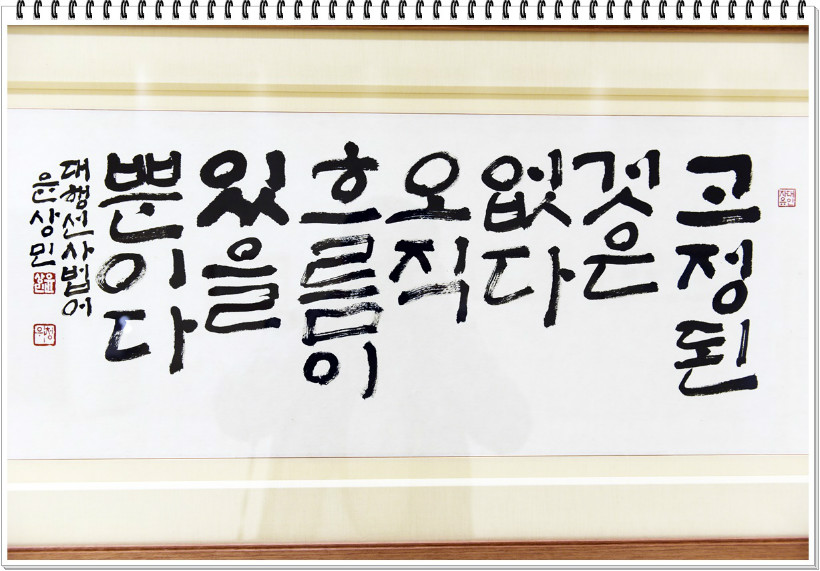 고정된
것은
없다
오직
흐름이
있을
뿐이다
대행선사법어
은상민